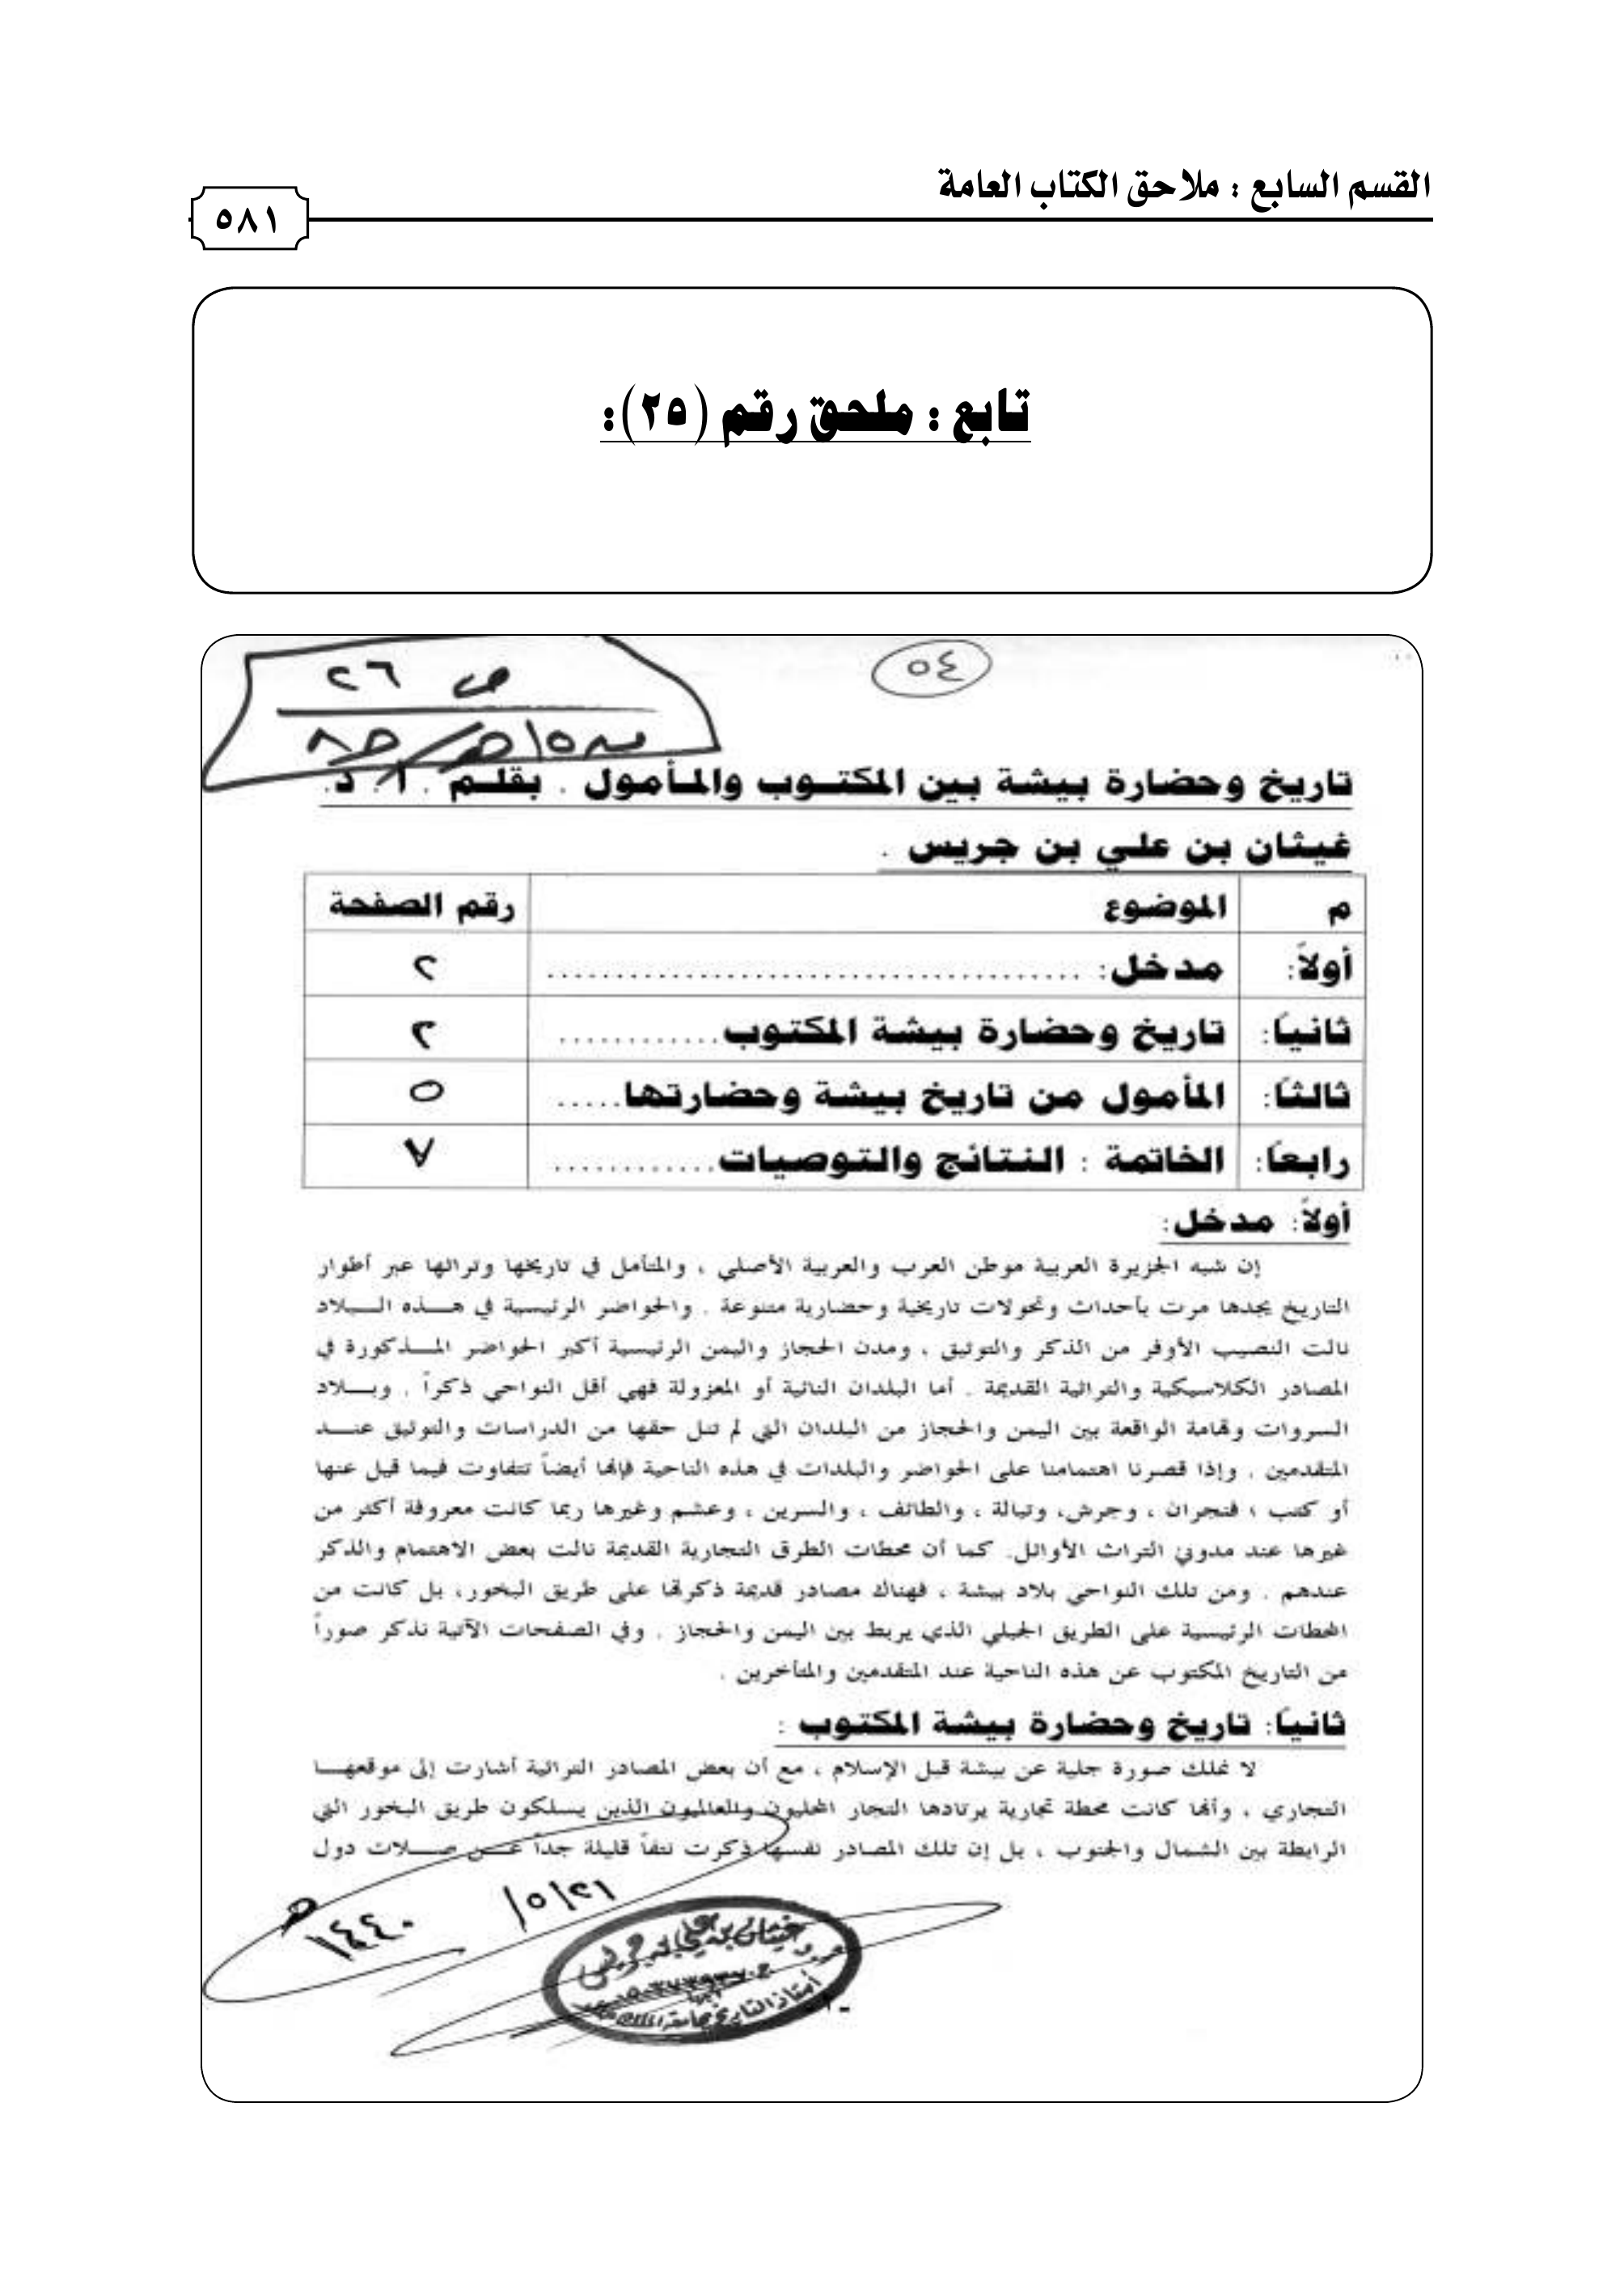 القسم السابع : ملاحق الكتاب العامة
٥٨١
تابع : ملحق رقم (٢٥):
٥٤
ص ٢٦
تاريخ وحضارة بيشة بين المكتوب والمأمول . بقلم . أ. د.
غيثان بن علي بن جريس .
م الموضوع رقم الصفحة
أولاً: مدخل: ...................................... ٢
ثانياً: تاريخ وحضارة بيشة المكتوب............ ٢
ثالثاً: المأمول من تاريخ بيشة وحضارتها..... ٥
رابعاً: الخاتمة : النتائج والتوصيات............ ٧
أولاً: مدخل:
إن شبه الجزيرة العربية موطن العرب والعربية الأصلي ، والمتأمل في تاريخها وتراثها عبر أطوار
التاريخ يجدها مرت بأحداث وتحولات تاريخية وحضارية متنوعة . والحواضر الرئيسية في هـــذه الـــبلاد
نالت النصيب الأوفر من الذكر والتوثيق ، ومدن الحجاز واليمن الرئيسية أكبر الحواضر المـــذكورة في
المصادر الكلاسيكية والتراثية القديمة . أما البلدان النائية أو المعزولة فهي أقل النواحي ذكراً . وبـــلاد
السروات وتهامة الواقعة بين اليمن والحجاز من البلدان التي لم تنل حقها من الدراسات والتوثيق عنـــد
المتقدمين . وإذا قصرنا اهتمامنا على الحواضر والبلدات في هذه الناحية فإنها أيضاً تتفاوت فيما قيل عنها
أو كتب ؛ فنجران ، وجرش، وتبالة ، والطائف ، والسرين ، وعشم وغيرها ربما كانت معروفة أكثر من
غيرها عند مدوني التراث الأوائل. كما أن محطات الطرق التجارية القديمة نالت بعض الاهتمام والذكر
عندهم . ومن تلك النواحي بلاد بيشة ، فهناك مصادر قديمة ذكرتها على طريق البخور، بل كانت من
المحطات الرئيسية على الطريق الجبلي الذي يربط بين اليمن والحجاز . وفي الصفحات الآتية نذكر صوراً
من التاريخ المكتوب عن هذه الناحية عند المتقدمين والمتأخرين .
ثانياً: تاريخ وحضارة بيشة المكتوب :
لا نملك صورة جلية عن بيشة قبل الإسلام ، مع أن بعض المصادر التراثية أشارت إلى موقعهـــا
التجاري ، وأنها كانت محطة تجارية يرتادها التجار المحليون والعالميون الذين يسلكون طريق البخور التي
الرابطة بين الشمال والجنوب ، بل إن تلك المصادر نفسها ذكرت نتفاً قليلة جداً عـــن صـــلات دول
٢١/٥/
١٤٤٠هـ
غيثان بن علي بن جريس